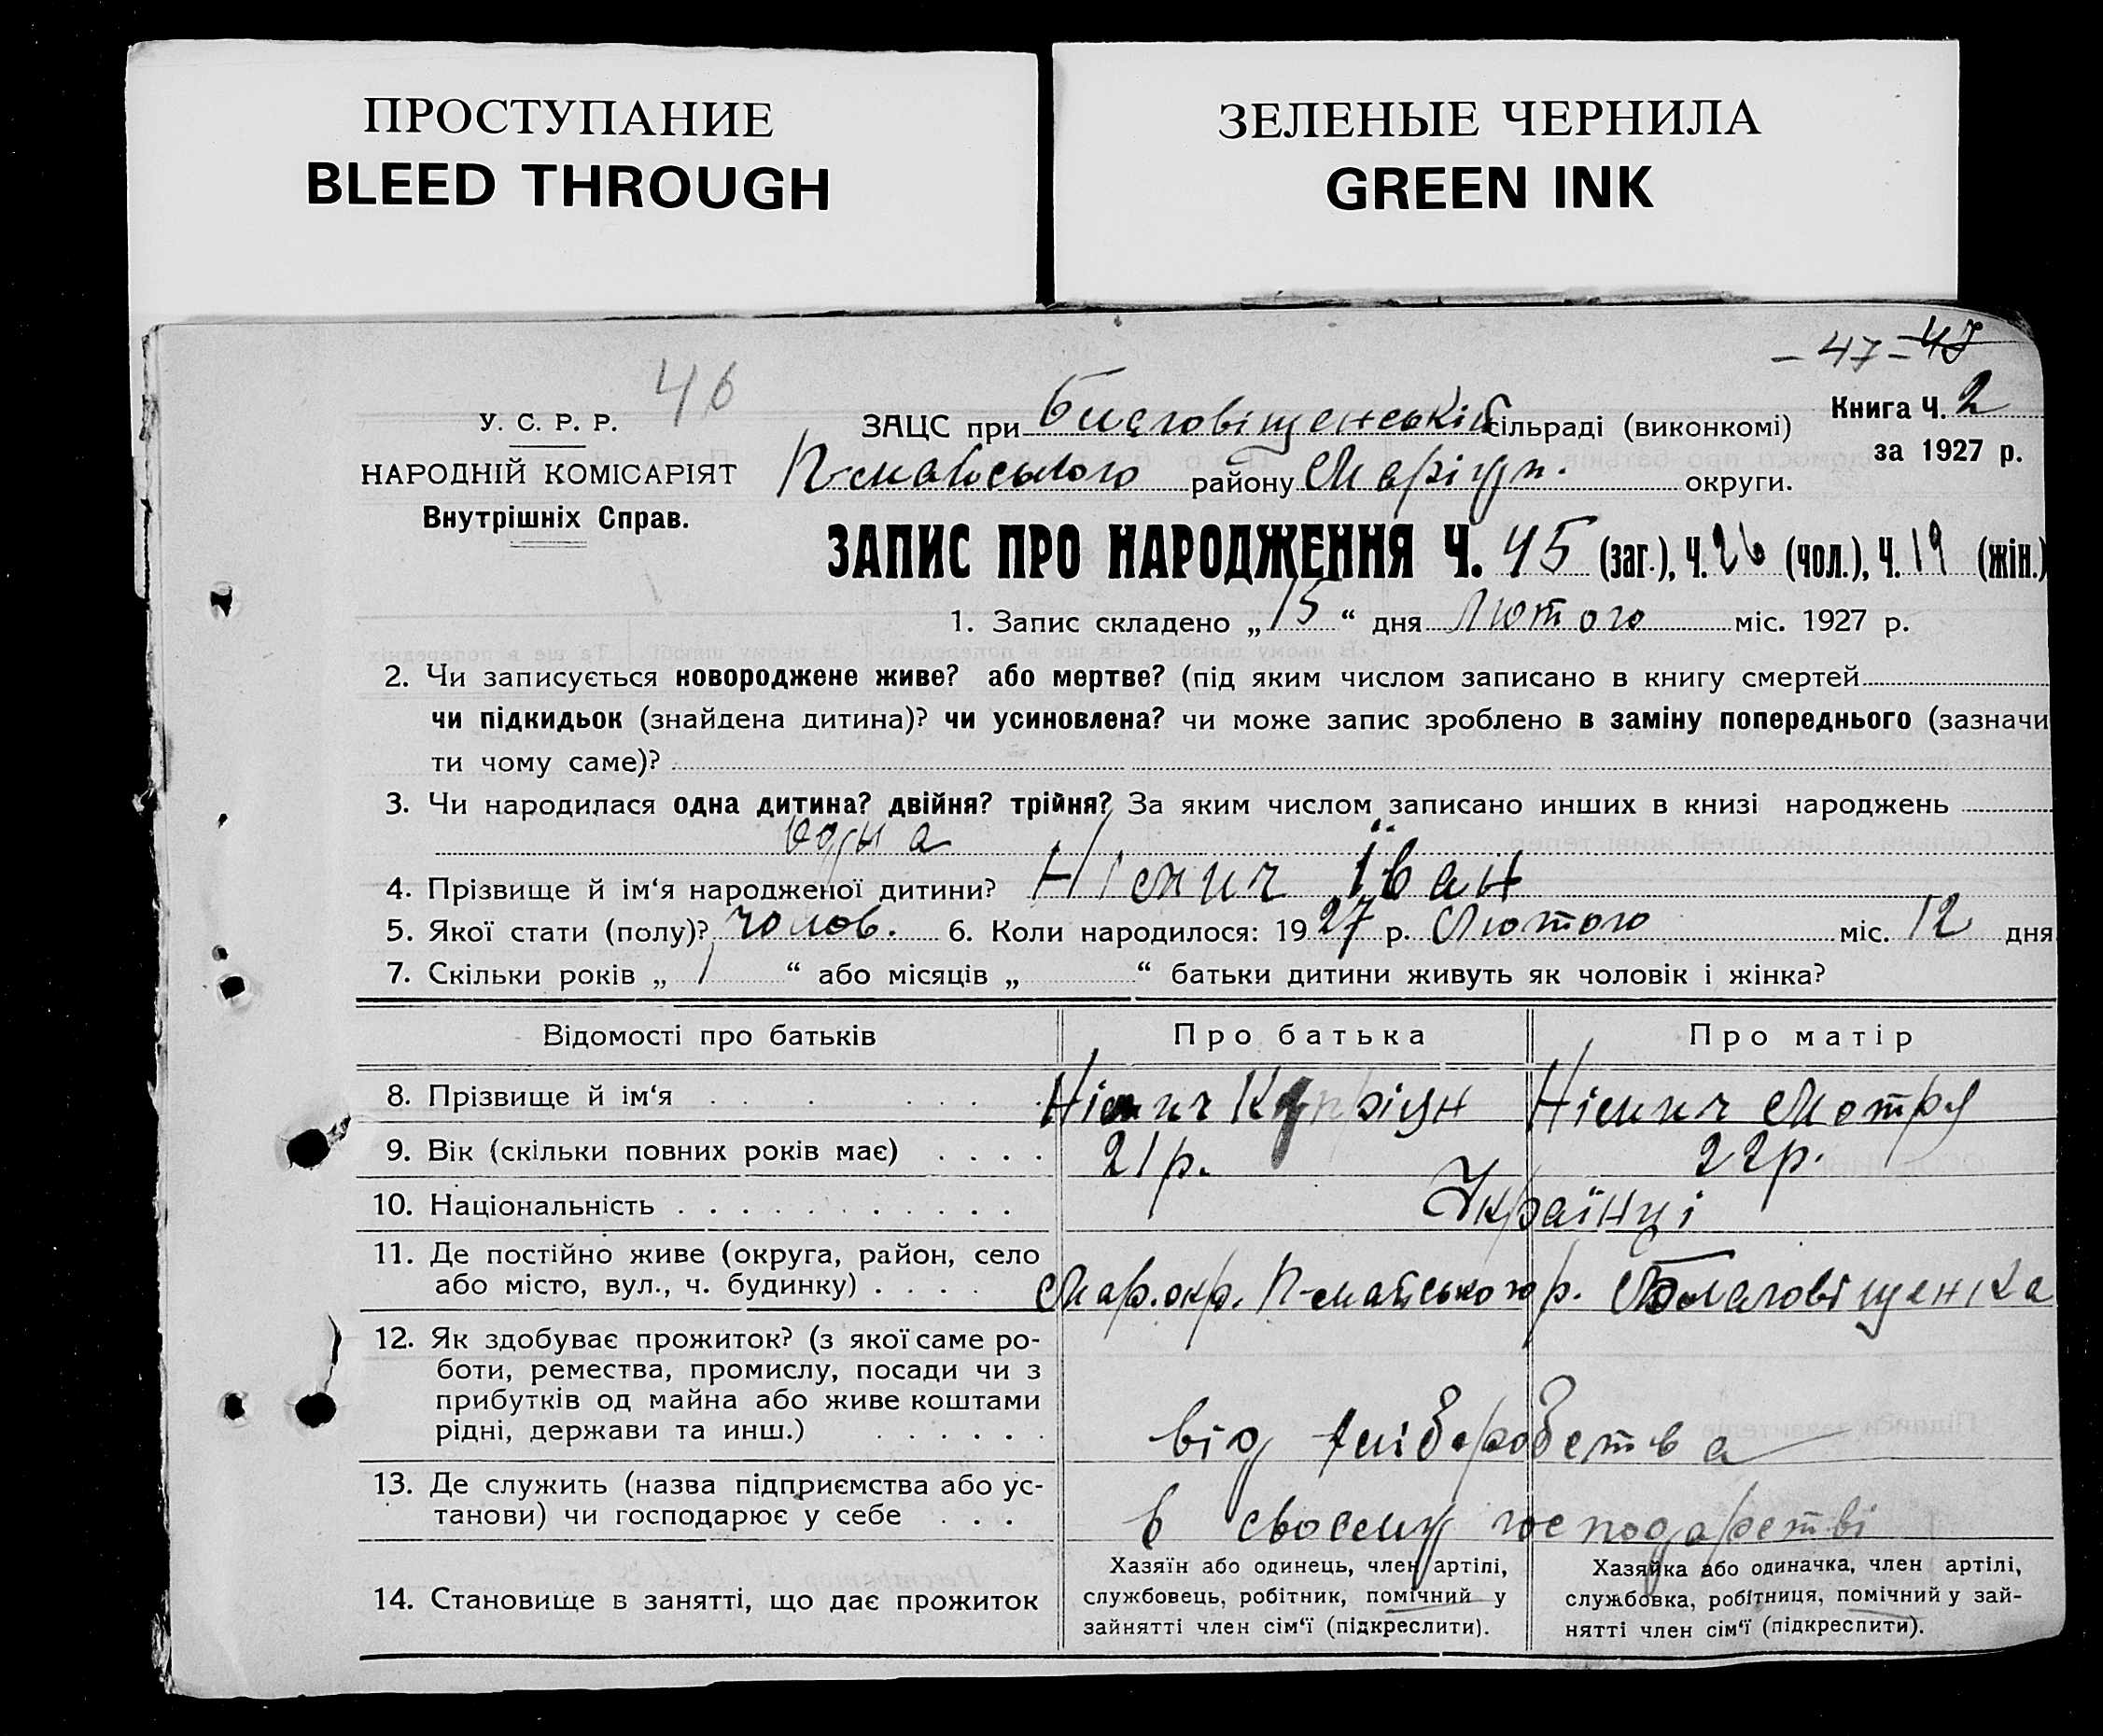 ПРОСТУПАНИЕ
BLEED THROUGH
ЗЕЛЕНЫЕ ЧЕРНИЛА
GREEN INK
– 47 – 47
46
У. С. Р. Р.
НАРОДНІЙ КОМІСАРІЯТ
Внутрішніх Справ.
ЗАЦС при Благовіщенській сільраді (виконкомі)
Книга Ч. 2
за 1927 р.
П-майського району Маріуп. округи.
ЗАПИС ПРО НАРОДЖЕННЯ Ч. 45 (заг.), Ч. 26 (чол.), Ч. 19 (жін.)
1. Запис складено „ 15 “ дня Лютого міс. 1927 р.
2. Чи записується новороджене живе? або мертве? (під яким числом записано в книгу смертей
чи підкидьок (знайдена дитина)? чи усиновлена? чи може запис зроблено в заміну попереднього (зазначи
ти чому саме)?
3. Чи народилася одна дитина? двійня? трійня? За яким числом записано инших в книзі народжень
одна
4. Прізвище й ім‘я народженої дитини? Німич Іван
5. Якої стати (полу)? чолов. 6. Коли народилося: 1927 р. Лютого міс. 12 дня
7. Скільки років „ 1 “ або місяців „ “ батьки дитини живуть як чоловік і жінка?
Відомості про батьків Про батька Про матір
8. Прізвище й ім‘я Німич Купріян Німич Мотря
9. Вік (скільки повних років має) 21 р. 22 р.
10. Національність Українці
11. Де постійно живе (округа, район, село
або місто, вул., ч. будинку) Мар. окр. П-майського р. Благовіщенка
12. Як здобуває прожиток? (з якої саме ро-
боти, ремества, промислу, посади чи з
прибутків од майна або живе коштами
рідні, держави та инш.) від хліборобства
13. Де служить (назва підприємства або ус-
танови) чи господарює у себе в своєму господарстві
14. Становище в занятті, що дає прожиток
Хазяїн або одинець, член артілі,
службовець, робітник, помічний у
зайнятті член сім‘ї (підкреслити).
Хазяйка або одиначка, член артілі,
службовка, робітниця, помічний у зай-
нятті член сім‘ї (підкреслити).